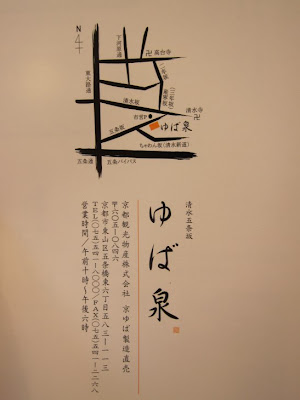 N
下河原通
卍 高台寺
東大路通
二年坂
(三年坂)
産寧坂
清水坂
清水寺
卍
市営P
ゆば泉
五条坂
ちゃわん坂(清水新道)
五条通
五条バイパス
清水五条坂
ゆば泉
京都観光物産株式会社 京ゆば製造直売
〒六〇五-〇八四六
京都市東山区五条橋東六丁目五八三-一一三
TEL(〇七五)五四一-八〇〇〇/FAX(〇七五)五四一-二二六八
営業時間/午前十時〜午後六時